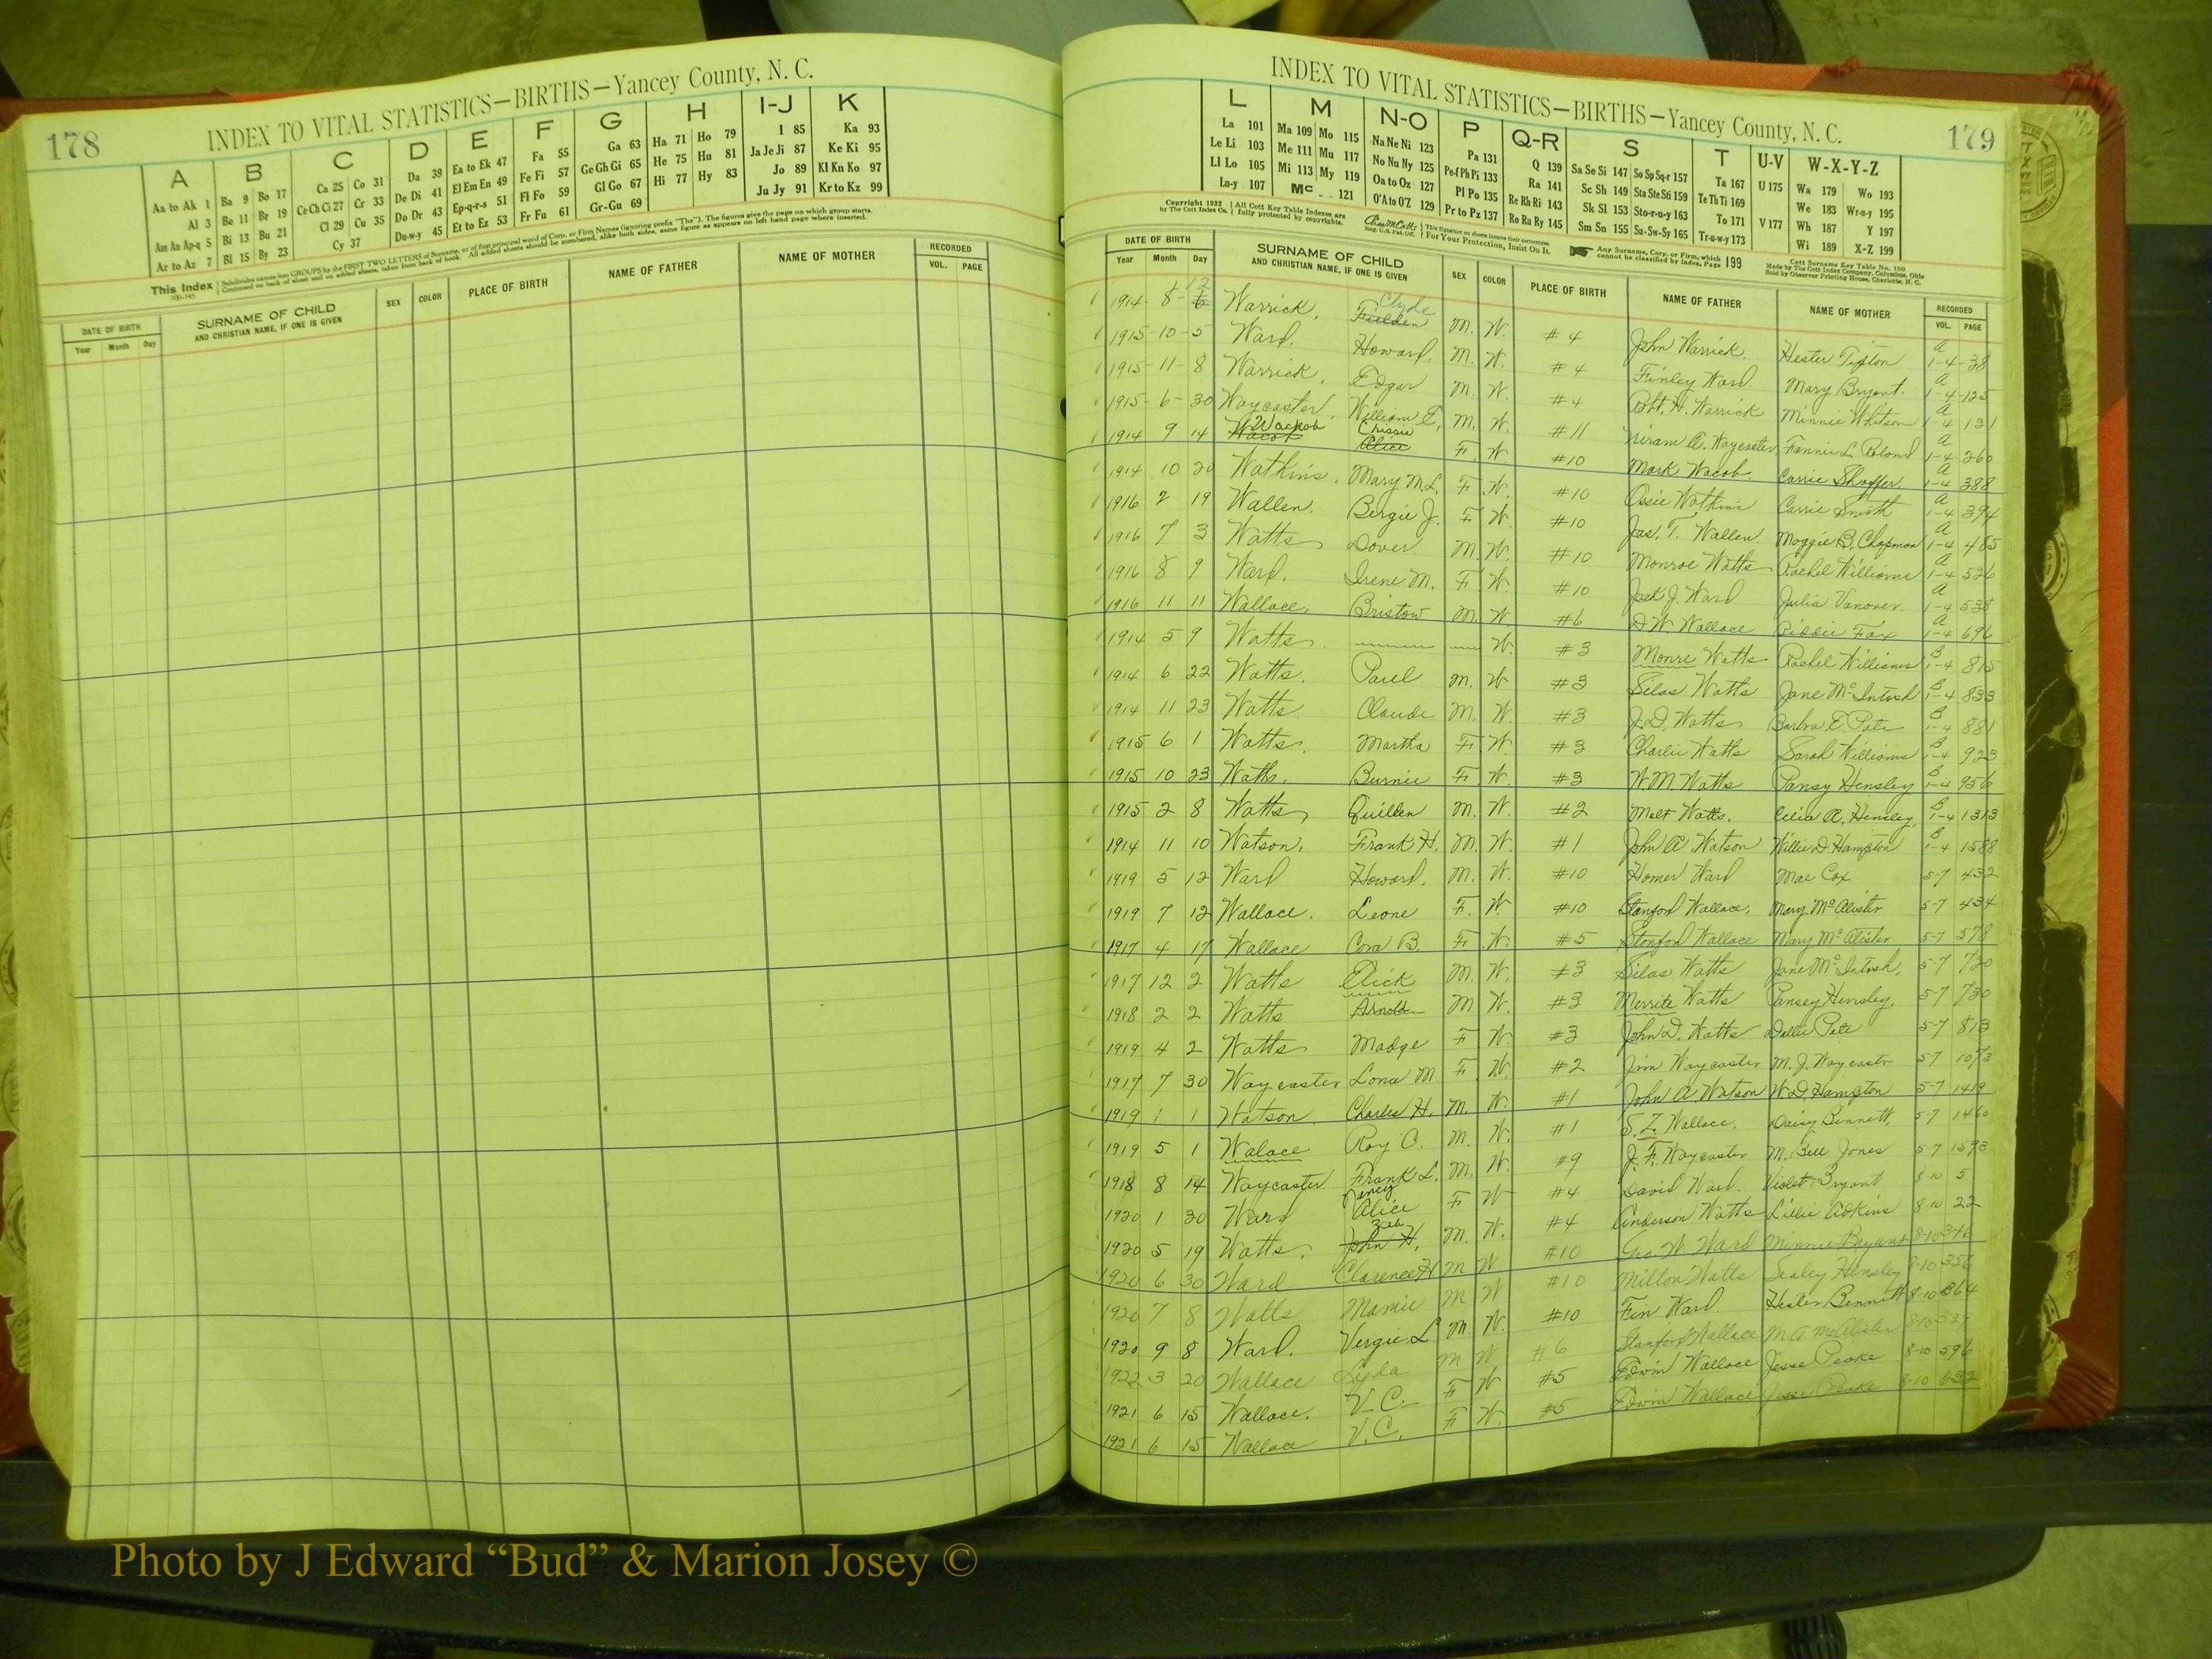 178
INDEX TO VITAL STATISTICS—BIRTHS—Yancey County, N. C.
A B C D E F G H I-J K
Aa to Ak 1 Ba 9 Bo 17 Ca 25 Co 31 Da 39 Ea to Ek 47 Fa 55 Ga 63 Ha 71 Ho 79 I 85 Ka 93
Al 3 Be 11 Br 19 Ce Ch Ci 27 Cr 33 De Di 41 El Em En 49 Fe Fi 57 Ge Gh Gi 65 He 75 Hu 81 Ja Je Ji 87 Ke Ki 95
Am An Ap-q 5 Bi 13 Bu 21 Cl 29 Cu 35 Do Dr 43 Ep-q-r-s 51 Fl Fo 59 Gl Go 67 Hi 77 Hy 83 Jo 89 Kl Kn Ko 97
Ar to Az 7 Bl 15 By 23 Cy 37 Du-w-y 45 Et to Ez 53 Fr Fu 61 Gr-Gu 69 Ju Jy 91 Kr to Kz 99
This Index
Subdivides names into GROUPS by the FIRST TWO LETTERS of Surname, or of first principal word of Corp. or Firm Names (ignoring prefix "The"). The figures give the page on which group starts.
Continued on back of sheet and on added sheets, taken from back of book. All added sheets should be numbered, alike both sides, same figure as appears on left hand page where inserted.
DATE OF BIRTH SURNAME OF CHILD SEX COLOR PLACE OF BIRTH NAME OF FATHER NAME OF MOTHER RECORDED
Year Month Day AND CHRISTIAN NAME, IF ONE IS GIVEN VOL. PAGE
INDEX TO VITAL STATISTICS—BIRTHS—Yancey County, N. C.
179
L M N-O P Q-R S T U-V W-X-Y-Z
La 101 Ma 109 Mo 115 Na Ne Ni 123 Pa 131 Q 139 Sa Se Si 147 So Sp Sq-r 157 Ta 167 U 175 Wa 179 Wo 193
Le Li 103 Me 111 Mu 117 No Nu Ny 125 Pe-f Ph Pi 133 Ra 141 Sc Sh 149 Sta Ste Sti 159 Te Th Ti 169 We 183 Wr-u-y 195
Ll Lo 105 Mi 113 My 119 Oa to Oz 127 Pl Po 135 Re Rh Ri 143 Sk Sl 153 Sto-r-u-y 163 To 171 V 177 Wh 187 Y 197
Lu-y 107 Mc 121 O'A to O'Z 129 Pr to Pz 137 Ro Ru Ry 145 Sm Sn 155 Su-Sw-Sy 165 Tr-u-w-y 173 Wi 189 X-Z 199
Copyright 1922 by The Cott Index Co. All Cott Key Table Indexes are fully protected by copyrights.
For Your Protection, Insist On It.
Any Surname, Corp. or Firm, which cannot be classified by Index, Page 199
Made by The Cott Index Company, Columbus, Ohio
Sold by Observer Printing House, Charlotte, N. C.
DATE OF BIRTH SURNAME OF CHILD SEX COLOR PLACE OF BIRTH NAME OF FATHER NAME OF MOTHER RECORDED
Year Month Day AND CHRISTIAN NAME, IF ONE IS GIVEN VOL. PAGE
1914-8-12 Warrick, Clyde M. W. #4 John Warrick. Hester Tipton A 1-4-38
1915-10-5 Ward, Howard, M. W. #4 Finley Ward. Mary Bryant. A 1-4-125
1915-11-8 Warrick, Edgar M. W. #4 Robt. H. Warrick Minnie Whitson A 1-4 131
1915-6-30 Waycaster, William E, M. W. #11 Niram A. Waycaster Fannie L. Roland A 1-4-260
1914 9 14 Chrissie Alice F. W #10 Mark Wacob. Carrie Shaffer A 1-4 388
1914 10 20 Watkins, Mary M.L. F. W. #10 Ossie Watkins Carrie Smith A 1-4 394
1916 2 19 Wallen. Birgie J. F. W. #10 Jas. T. Wallen. Maggie B. Chapman A 1-4 485
1916 7 3 Watts Dover. M. W. #10 Monroe Watts Rachel Williams A 1-4 526
1916 8 9 Ward, Irene M. F. W. #10 Jack J. Ward Julia Vanover. A 1-4 538
1916 11 11 Wallace, Bristow M. W. #6 D.W. Wallace Fox A 1-4 696
1914 5 9 Watts. W. #3 Monre Watts Rachel Williams B 1-4 815
1914 6 22 Watts, Paul M. W #3 Silas Watts Jane McIntosh B 1-4 833
1914 11 23 Watts Claude M. W. #3 J.D. Watts Barbra E. Pate B 1-4 881
1915 6 1 Watts, Martha F. W #3 Charlie Watts Sarah Williams B 1-4 923
1915 10 23 Watts. Burnie F. W. #3 W.M. Watts Pansy Hensley B 1-4 956
1915 2 8 Watts, Quillen M. W. #2 Melt Watts. Celia A. Hensley, B 1-4 1313
1914 11 10 Watson, Frank H. M. W. #1 John A Watson Willie D Hampton B 1-4 1588
1919 5 12 Ward Howard. M. W. #10 Homer Ward Mae Cox 5-7 432
1919 7 12 Wallace, Leone F. W. #10 Stanford Wallace, Mary McAlister 5-7 434
1917 4 17 Wallace Cora B. F. W. #5 Stanford Wallace Mary McAlister 5-7 578
1917 12 2 Watts Elick M. W. #3 Silas Watts Jane McIntosh, 5-7 720
1918 2 2 Watts Arnold M W. #3 Merrite Watts Pansey Hensley, 5-7 730
1919 4 2 Watts Madge F W. #3 John D. Watts Dollie Pate 5-7 813
1917 7 30 Waycaster Lona M F. W. #2 Jim Waycaster M. J. Waycastr 5-7 1073
1919 1 1 Watson. Charles H. M. W. #1 John A Watson W.D. Hampton 5-7 1419
1919 5 1 Walace Roy C. M. W. #1 S.Z. Wallace. Daisy Bennett, 5-7 1460
1918 8 14 Waycaster Frank L. M. W. #9 J. F. Waycaster M. Bell Jones 5-7 1593
1920 1 30 Ward Nancy Alice F W #4 David Ward. Violet Bryant 8-10 5
1920 5 19 Watts, Zeb John H. M. W. #4 Anderson Watts Lillie Adkins 8-10 22
1920 6 30 Ward Clarence H M W #10 Geo. W Ward Minnie Bryant 8-10 346
1920 7 8 Watts Mamie M W #10 Milton Watts Sealey Hensley 8-10 356
1920 9 8 Ward. Vergie L M. W. #10 Fin Ward Hester Bennett 8-10 364
1922 3 20 Wallace Lyda M W #6 Stanford Wallace M A McAlister 8-10
1921 6 15 Wallace. V-C- F W #5 Edwin Wallace Jesse Peake 8-10 596
1921 6 15 Wallace V.C. F W. #5 Edwin Wallace Jesse Peake 8-10
Photo by J Edward “Bud” & Marion Josey ©